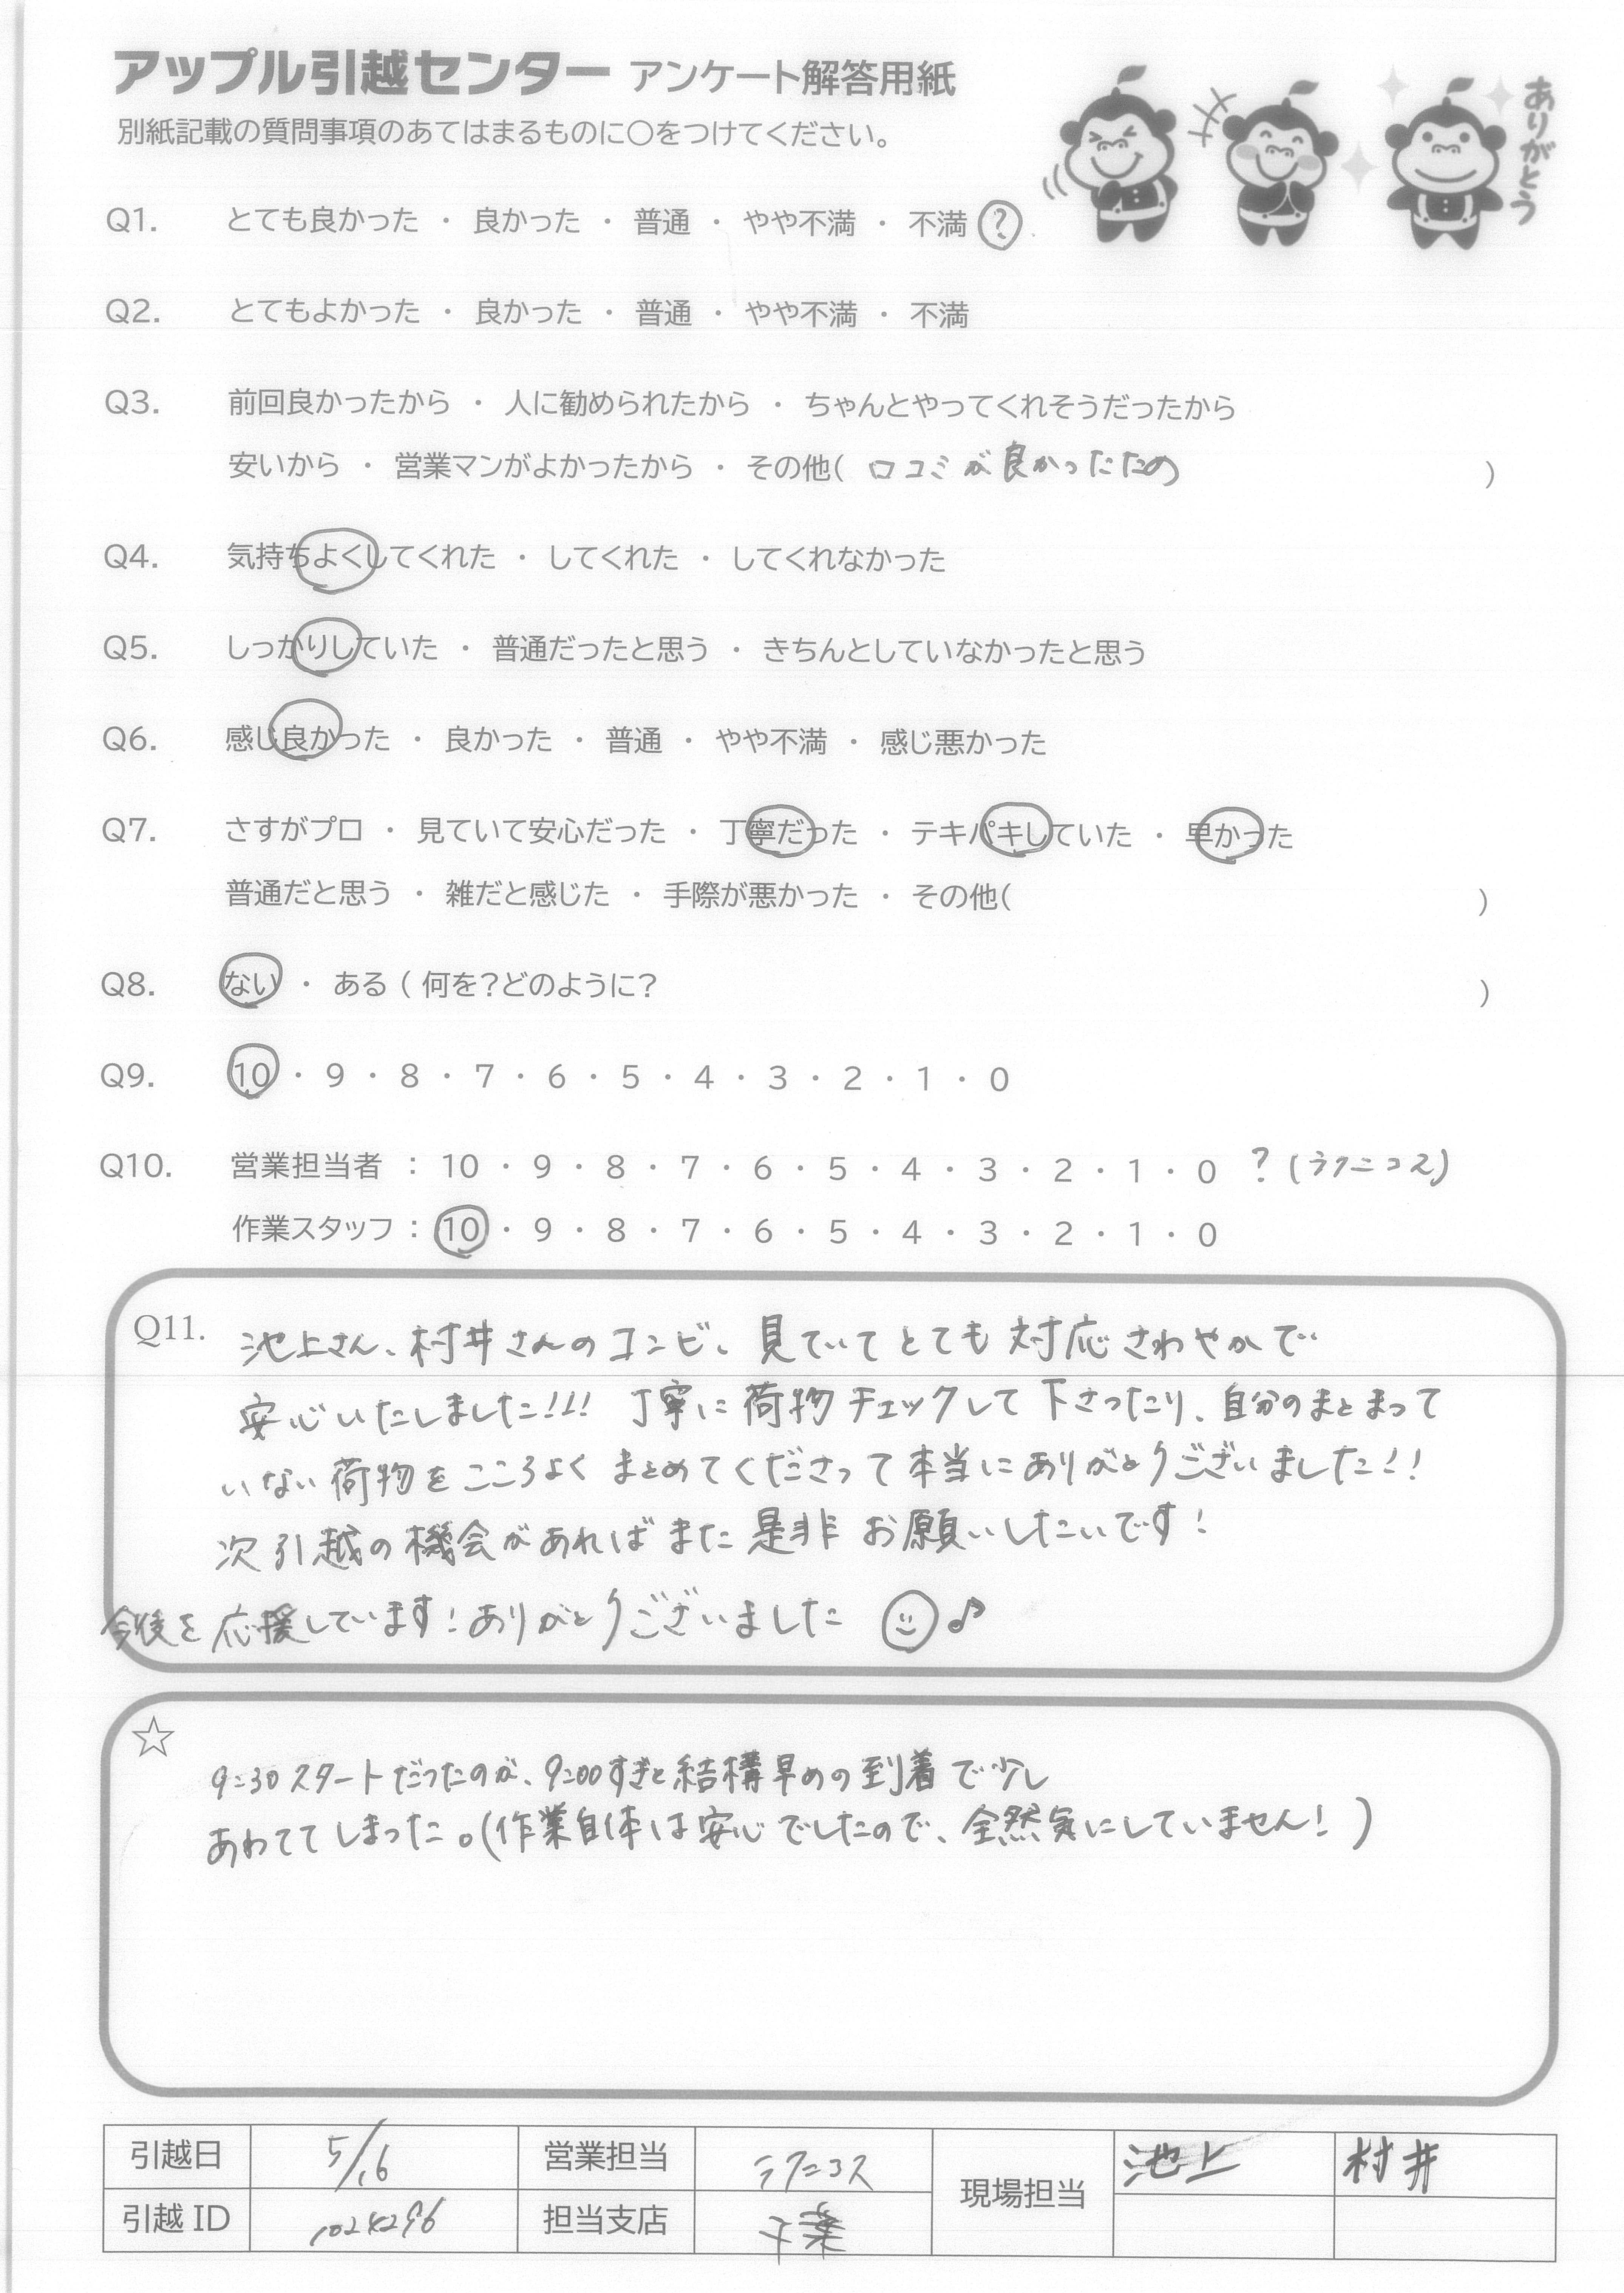 アップル引越センター アンケート解答用紙
別紙記載の質問事項のあてはまるものに○をつけてください。
ありがとう
Q1. とても良かった ・ 良かった ・ 普通 ・ やや不満 ・ 不満 ?
Q2. とてもよかった ・ 良かった ・ 普通 ・ やや不満 ・ 不満
Q3. 前回良かったから ・ 人に勧められたから ・ ちゃんとやってくれそうだったから
安いから ・ 営業マンがよかったから ・ その他( 口コミが良かったため )
Q4. 気持ちよくしてくれた ・ してくれた ・ してくれなかった
Q5. しっかりしていた ・ 普通だったと思う ・ きちんとしていなかったと思う
Q6. 感じ良かった ・ 良かった ・ 普通 ・ やや不満 ・ 感じ悪かった
Q7. さすがプロ ・ 見ていて安心だった ・ 丁寧だった ・ テキパキしていた ・ 早かった
普通だと思う ・ 雑だと感じた ・ 手際が悪かった ・ その他( )
Q8. ない ・ ある ( 何を?どのように? )
Q9. 10 ・ 9 ・ 8 ・ 7 ・ 6 ・ 5 ・ 4 ・ 3 ・ 2 ・ 1 ・ 0
Q10. 営業担当者 : 10 ・ 9 ・ 8 ・ 7 ・ 6 ・ 5 ・ 4 ・ 3 ・ 2 ・ 1 ・ 0 ? (ラクニコス)
作業スタッフ : 10 ・ 9 ・ 8 ・ 7 ・ 6 ・ 5 ・ 4 ・ 3 ・ 2 ・ 1 ・ 0
Q11. 池上さん、村井さんのコンビ、見ていてとても対応さわやかで
安心いたしました!!! 丁寧に荷物チェックして下さったり、自分のまとまって
いない荷物をこころよくまとめてくださって本当にありがとうございました!!
次引越の機会があればまた是非お願いしたいです!
今後を応援しています!ありがとうございました ♪
☆
9:30スタートだったのが、9:00すぎと結構早めの到着で少し
あわててしまった。(作業自体は安心でしたので、全然気にしていません!)
引越日 5/16 営業担当 ラクニコス 現場担当 池上 村井
引越ID 1024296 担当支店 千葉